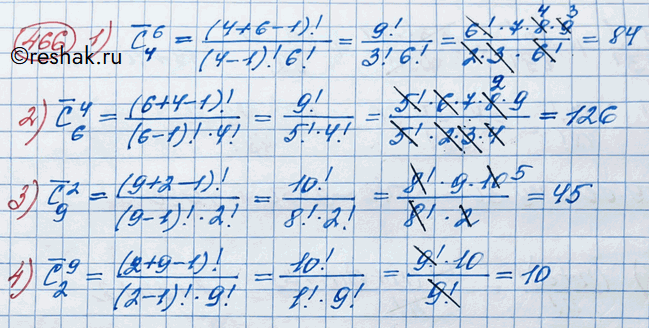 466 1) C̅₄⁶ = (4+6-1)! / (4-1)! 6! = 9! / 3! 6! = 6! · 7 · 8̶⁴ · 9̶³ / 2 · 3 · 6! = 84
©reshak.ru
2) C̅₆⁴ = (6+4-1)! / (6-1)! · 4! = 9! / 5! · 4! = 5! · 6 · 7 · 8̶² · 9 / 5! · 2 · 3 · 4 = 126
3) C̅₉² = (9+2-1)! / (9-1)! · 2! = 10! / 8! · 2! = 8! · 9 · 1̶0̶⁵ / 8! · 2 = 45
4) C̅₂⁹ = (2+9-1)! / (2-1)! · 9! = 10! / 1! · 9! = 9! · 10 / 9! = 10